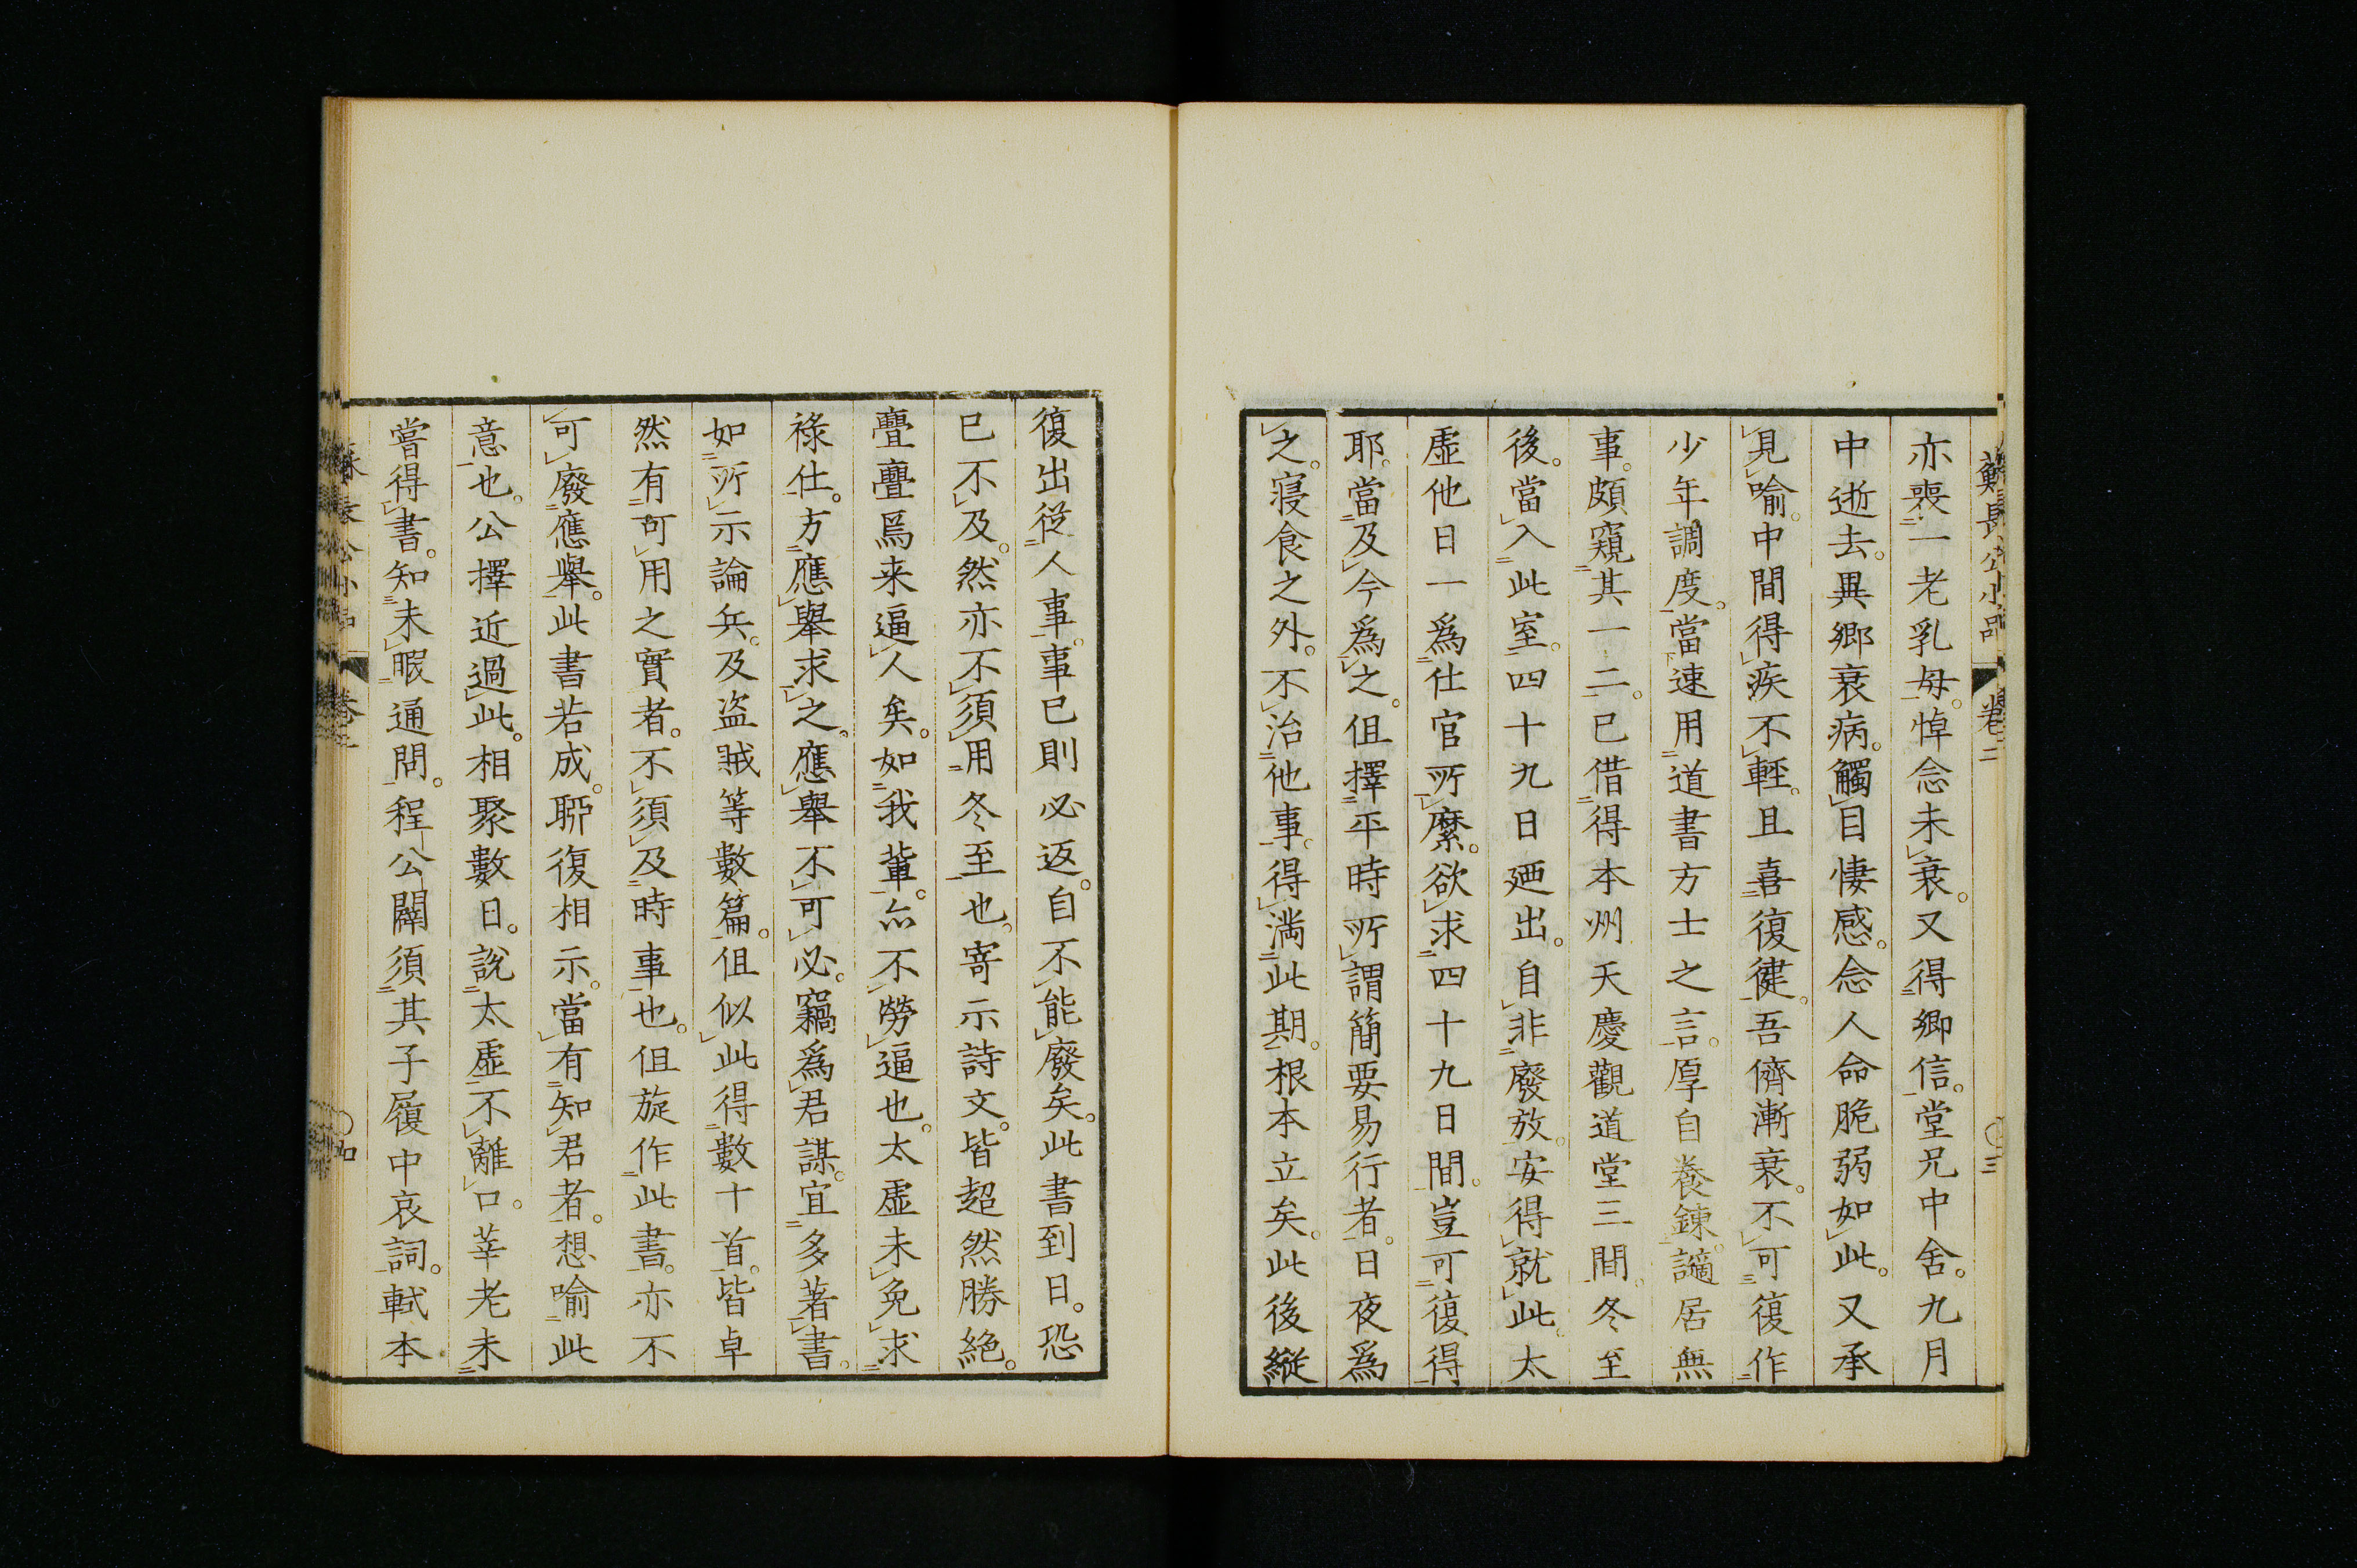 蘇長公小品 卷二 〇三
亦喪一老乳母。悼念未衰。又得鄉信。堂兄中舍。九月
中逝去。異鄉衰病。觸目悽感。念人命脆弱如此。又承
見喻。中間得疾不輕。且喜復健。吾儕漸衰。不可復作
少年調度。當速用道書方士之言。厚自養鍊。謫居無
事。頗窺其一二。已借得本州天慶觀道堂三間。冬至
後。當入此室。四十九日廼出。自非廢放。安得就此。太
虛他日一爲仕宦所縻。欲求四十九日間。豈可復得
耶。當及今爲之。但擇平時所謂簡要易行者。日夜爲
之。寢食之外。不治他事。得滿此期。根本立矣。此後縱
復出從人事。事已則必返。自不能廢矣。此書到日。恐
已不及。然亦不須用冬至也。寄示詩文。皆超然勝絕。
亹亹焉来逼人矣。如我輩。亦不勞逼也。太虛未免求
祿仕。方應舉求之。應舉不可必。竊爲君謀。宜多著書。
如所示論兵。及盜賊等數篇。但似此得數十首。皆卓
然有可用之實者。不須及時事也。但旋作此書。亦不
可廢應舉。此書若成。聊復相示。當有知君者。想喻此
意也。公擇近過此。相聚數日。說太虛不離口。莘老未
嘗得書。知未暇通問。程公闢須其子履中哀詞。軾本